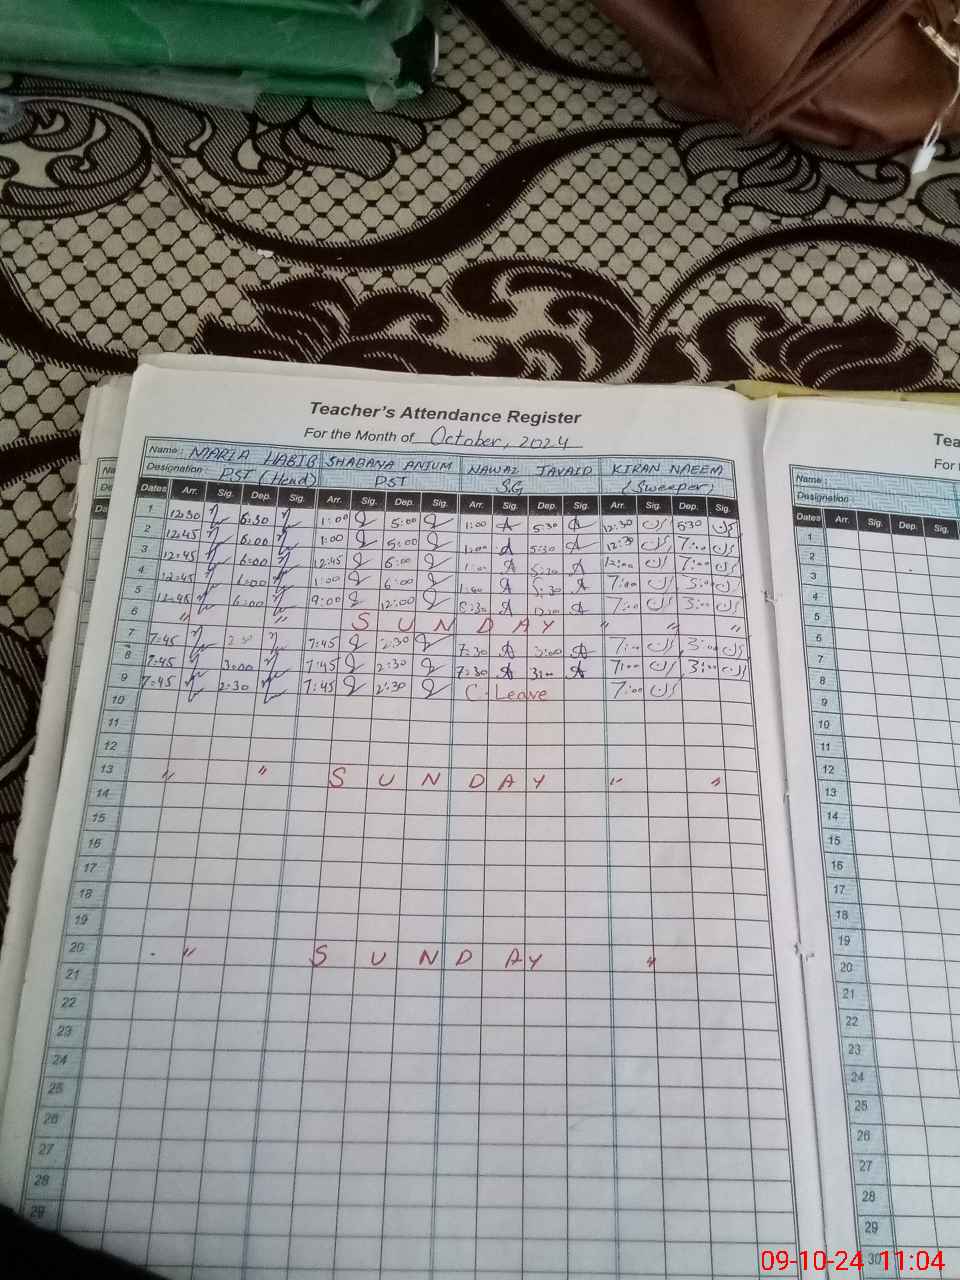 Teacher's Attendance Register
For the Month of October, 2024
Name: MARIA HABIB SHABANA ANJUM NAWAZ JAVAID KIRAN NAEEM
Designation: PST (Head) PST SG (Sweeper)
Dates Arr. Sig. Dep. Sig. Arr. Sig. Dep. Sig. Arr. Sig. Dep. Sig. Arr. Sig. Dep. Sig.
1 12:30 6:30 1:00 5:00 1:00 5:30 12:30 کرن 5:30 کرن
2 12:45 6:00 1:00 5:00 5:30 12:30 کرن 7:00 کرن
3 12:45 6:00 12:45 6:00 کرن 7:00 کرن
4 12:45 6:00 1:00 6:00 5:30 7:00 کرن کرن
5 6:00 9:00 12:00 8:30 7:00 کرن 3:00 کرن
6 " " S U N D A Y " "
7 7:45 7:45 2:30 7:30 7:00 کرن 3:00 کرن
8 7:45 3:00 7:45 2:30 7:30 3:00 7:00 کرن 3:00 کرن
9 7:45 2:30 7:45 2:30 C-Leave 7:00 کرن
10
11
12
13 " " S U N D A Y " "
14
15
16
17
18
19
20 " S U N D A Y "
21
22
23
24
25
26
27
28
29
Tea
For
Name:
Designation
Dates Arr. Sig. Dep. Sig.
1
2
3
4
5
6
7
8
9
10
11
12
13
14
15
16
17
18
19
20
21
22
23
24
25
26
27
28
29
30
09-10-24 11:04